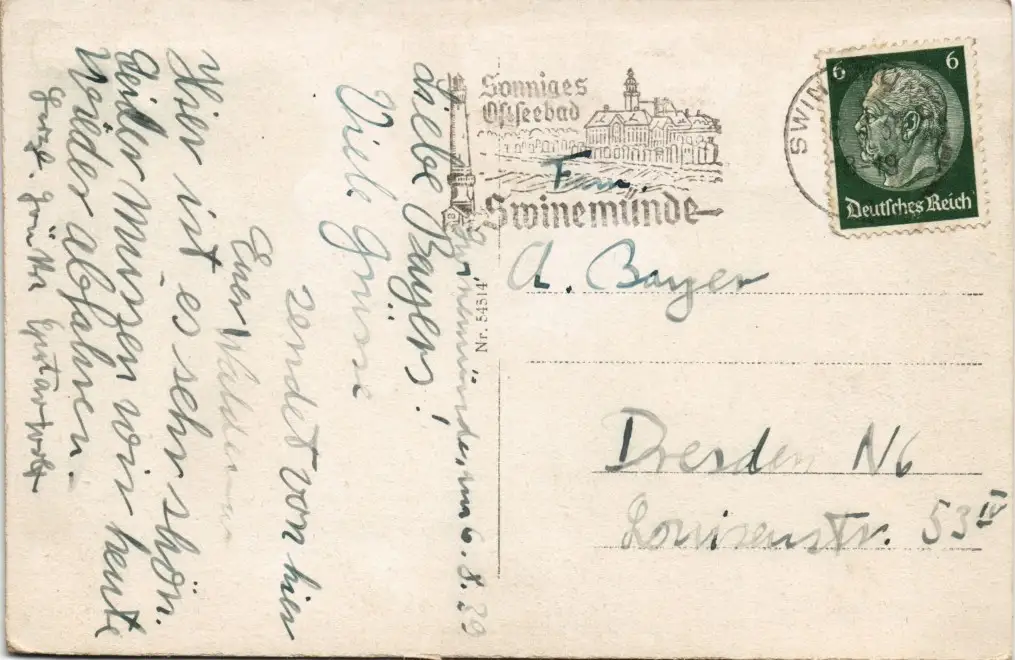 Swinemünde, am 6.8.39
Liebe Bayers!
Viele Grüsse
sendet von hier
Euer Waldemar
Hier ist es sehr schön.
Leider müssen wir heute
wieder abfahren.
Herzl. Grüße
Nr. 54514
Sonniges
Ostseebad
Swinemünde
SWIN
6 6
Deutsches Reich
Fam.
A. Bayer
Dresden N6
Louisenstr. 53 IV